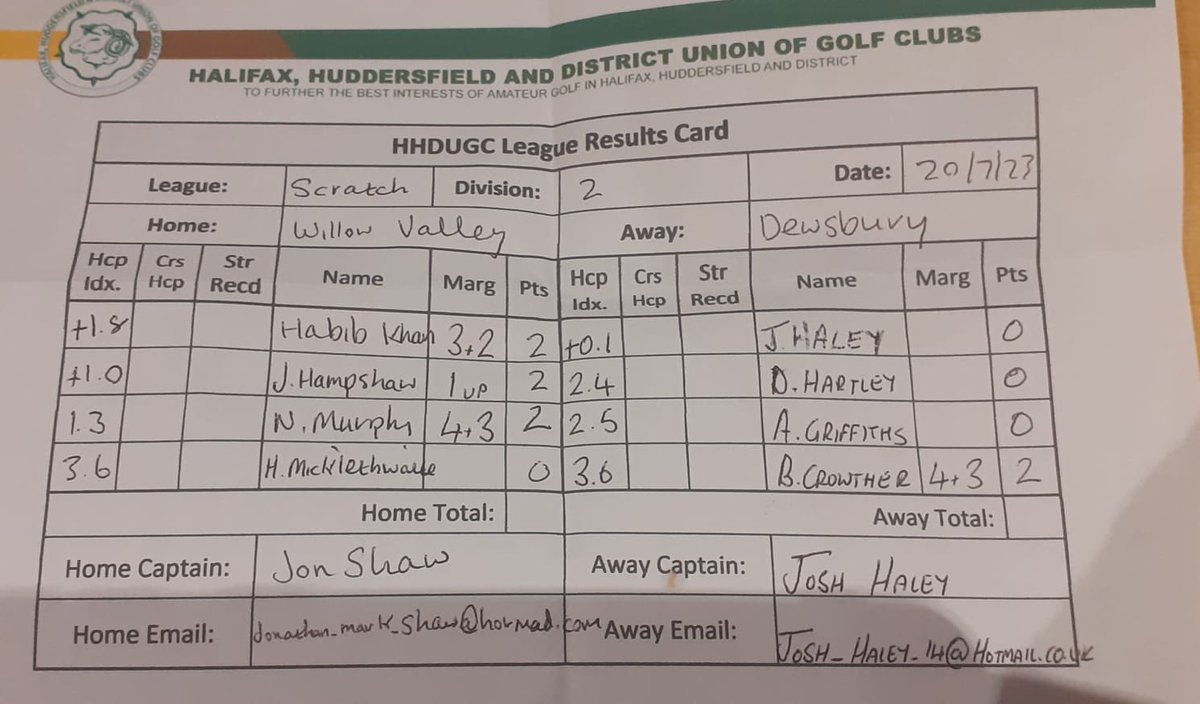 HALIFAX, HUDDERSFIELD AND DISTRICT UNION OF GOLF CLUBS
TO FURTHER THE BEST INTERESTS OF AMATEUR GOLF IN HALIFAX, HUDDERSFIELD AND DISTRICT
HHDUGC League Results Card
League: Scratch Division: 2 Date: 20/7/23
Home: Willow Valley Away: Dewsbury
Hcp Idx. Crs Hcp Str Recd Name Marg Pts Hcp Idx. Crs Hcp Str Recd Name Marg Pts
+1.8 Habib Khan 3+2 2 +0.1 J. HALEY 0
+1.0 J. Hampshaw 1 UP 2 2.4 D. HARTLEY 0
1.3 N. Murphy 4+3 2 2.5 A. GRIFFITHS 0
3.6 H. Micklethwaite 0 3.6 B. CROWTHER 4+3 2
Home Total: Away Total:
Home Captain: Jon Shaw Away Captain: JOSH HALEY
Home Email: Jonathan_mark_shaw@hotmail.com Away Email: JOSH_HALEY_14@HOTMAIL.CO.UK